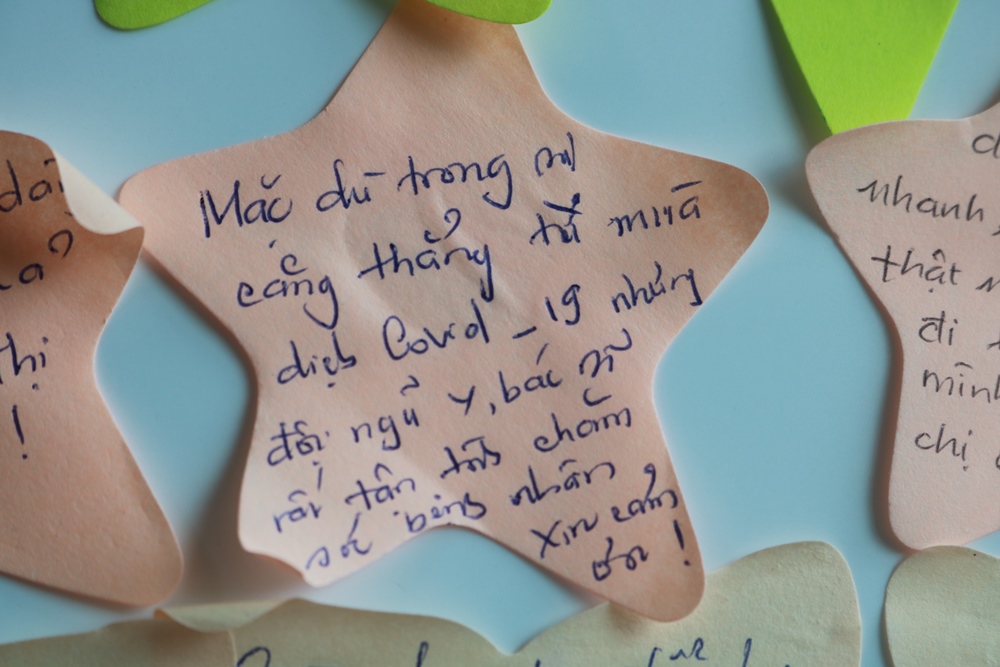 Mặc dù trong sự
căng thẳng từ mùa
dịch Covid-19 nhưng
đội ngũ y, bác sĩ
rất tận tình chăm
sóc bệnh nhân
Xin cảm
ơn!
dài
thị
!
nhanh
thật
đi
mình
chị